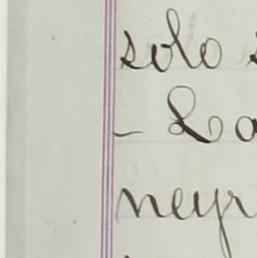 solo s
- Lo
neyr